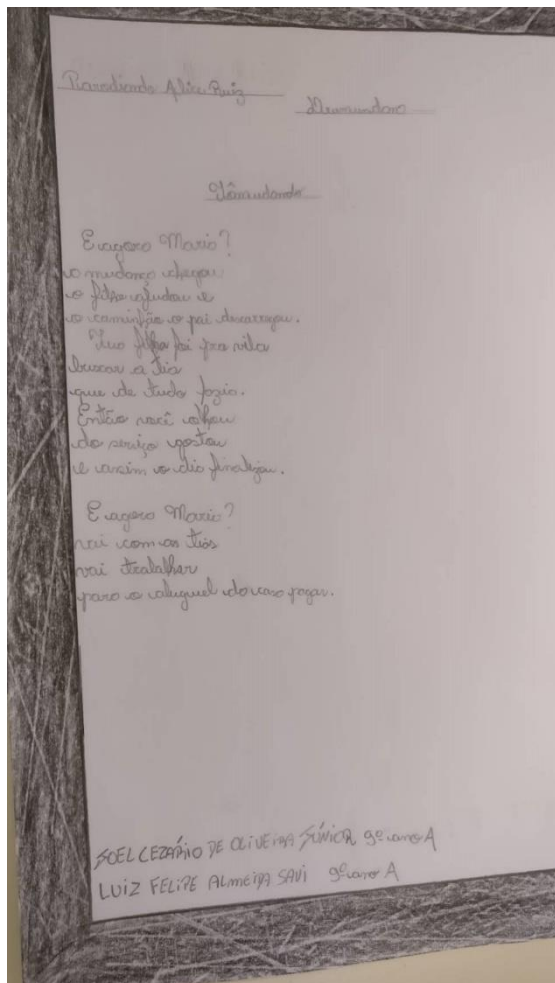 Parodiando Alice Ruiz
Drumundana
Tômudando
E agora Maria?
a mudança chegou
o filho ajudou e
o caminhão o pai descarregou.
Tua filha foi pra vila
buscar a tia
que de tudo fazia.
Então você olhou
do serviço gostou
e assim o dia finalizou.
E agora Maria?
vai com as tias
vai trabalhar
para o aluguel da casa pagar.
JOEL CEZÁRIO DE OLIVEIRA JÚNIOR 9º ano A
LUIZ FELIPE ALMEIDA SAVI 9º ano A